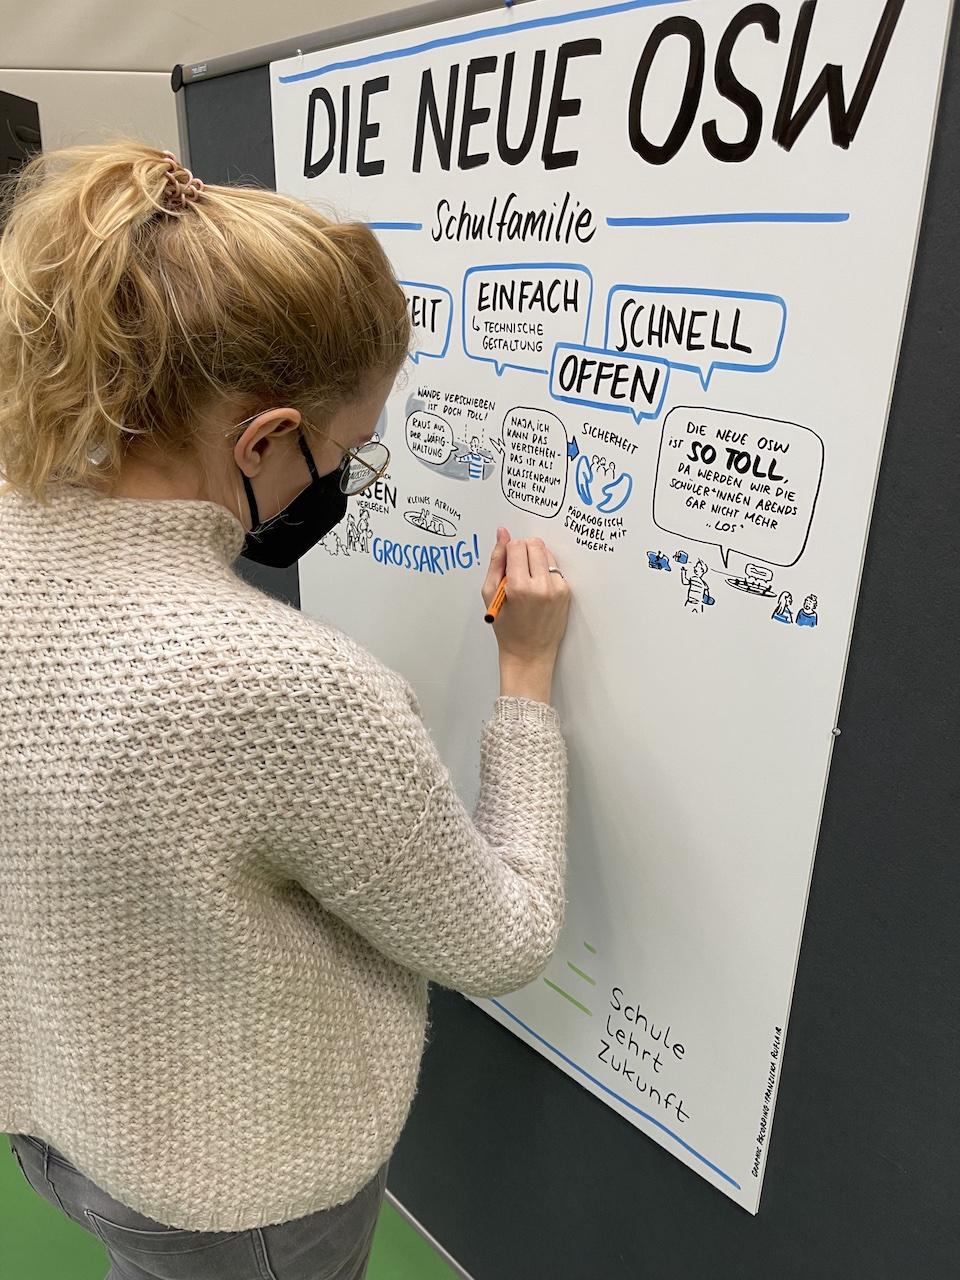 DIE NEUE OSW
Schulfamilie
EIT
EINFACH
↳ TECHNISCHE
GESTALTUNG
SCHNELL
OFFEN
WÄNDE VERSCHIEBEN
IST DOCH TOLL!
RAUS AUS
DER „KÄFIG-
HALTUNG
NAJA, ICH
KANN DAS
VERSTEHEN-
DAS IST ALS
KLASSENRAUM
AUCH EIN
SCHUTZRAUM
SICHERHEIT
PÄDAGOGISCH
SENSIBEL MIT
UMGEHEN
DIE NEUE OSW
ist SO TOLL,
DA WERDEN WIR DIE
SCHÜLER*INNEN ABENDS
GAR NICHT MEHR
„LOS"
SSEN
VERLEGEN
KLEINES ATRIUM
GROSSARTIG!
Schule
lehrt
Zukunft
GRAPHIC RECORDING: FRANZISKA RUFLAIR